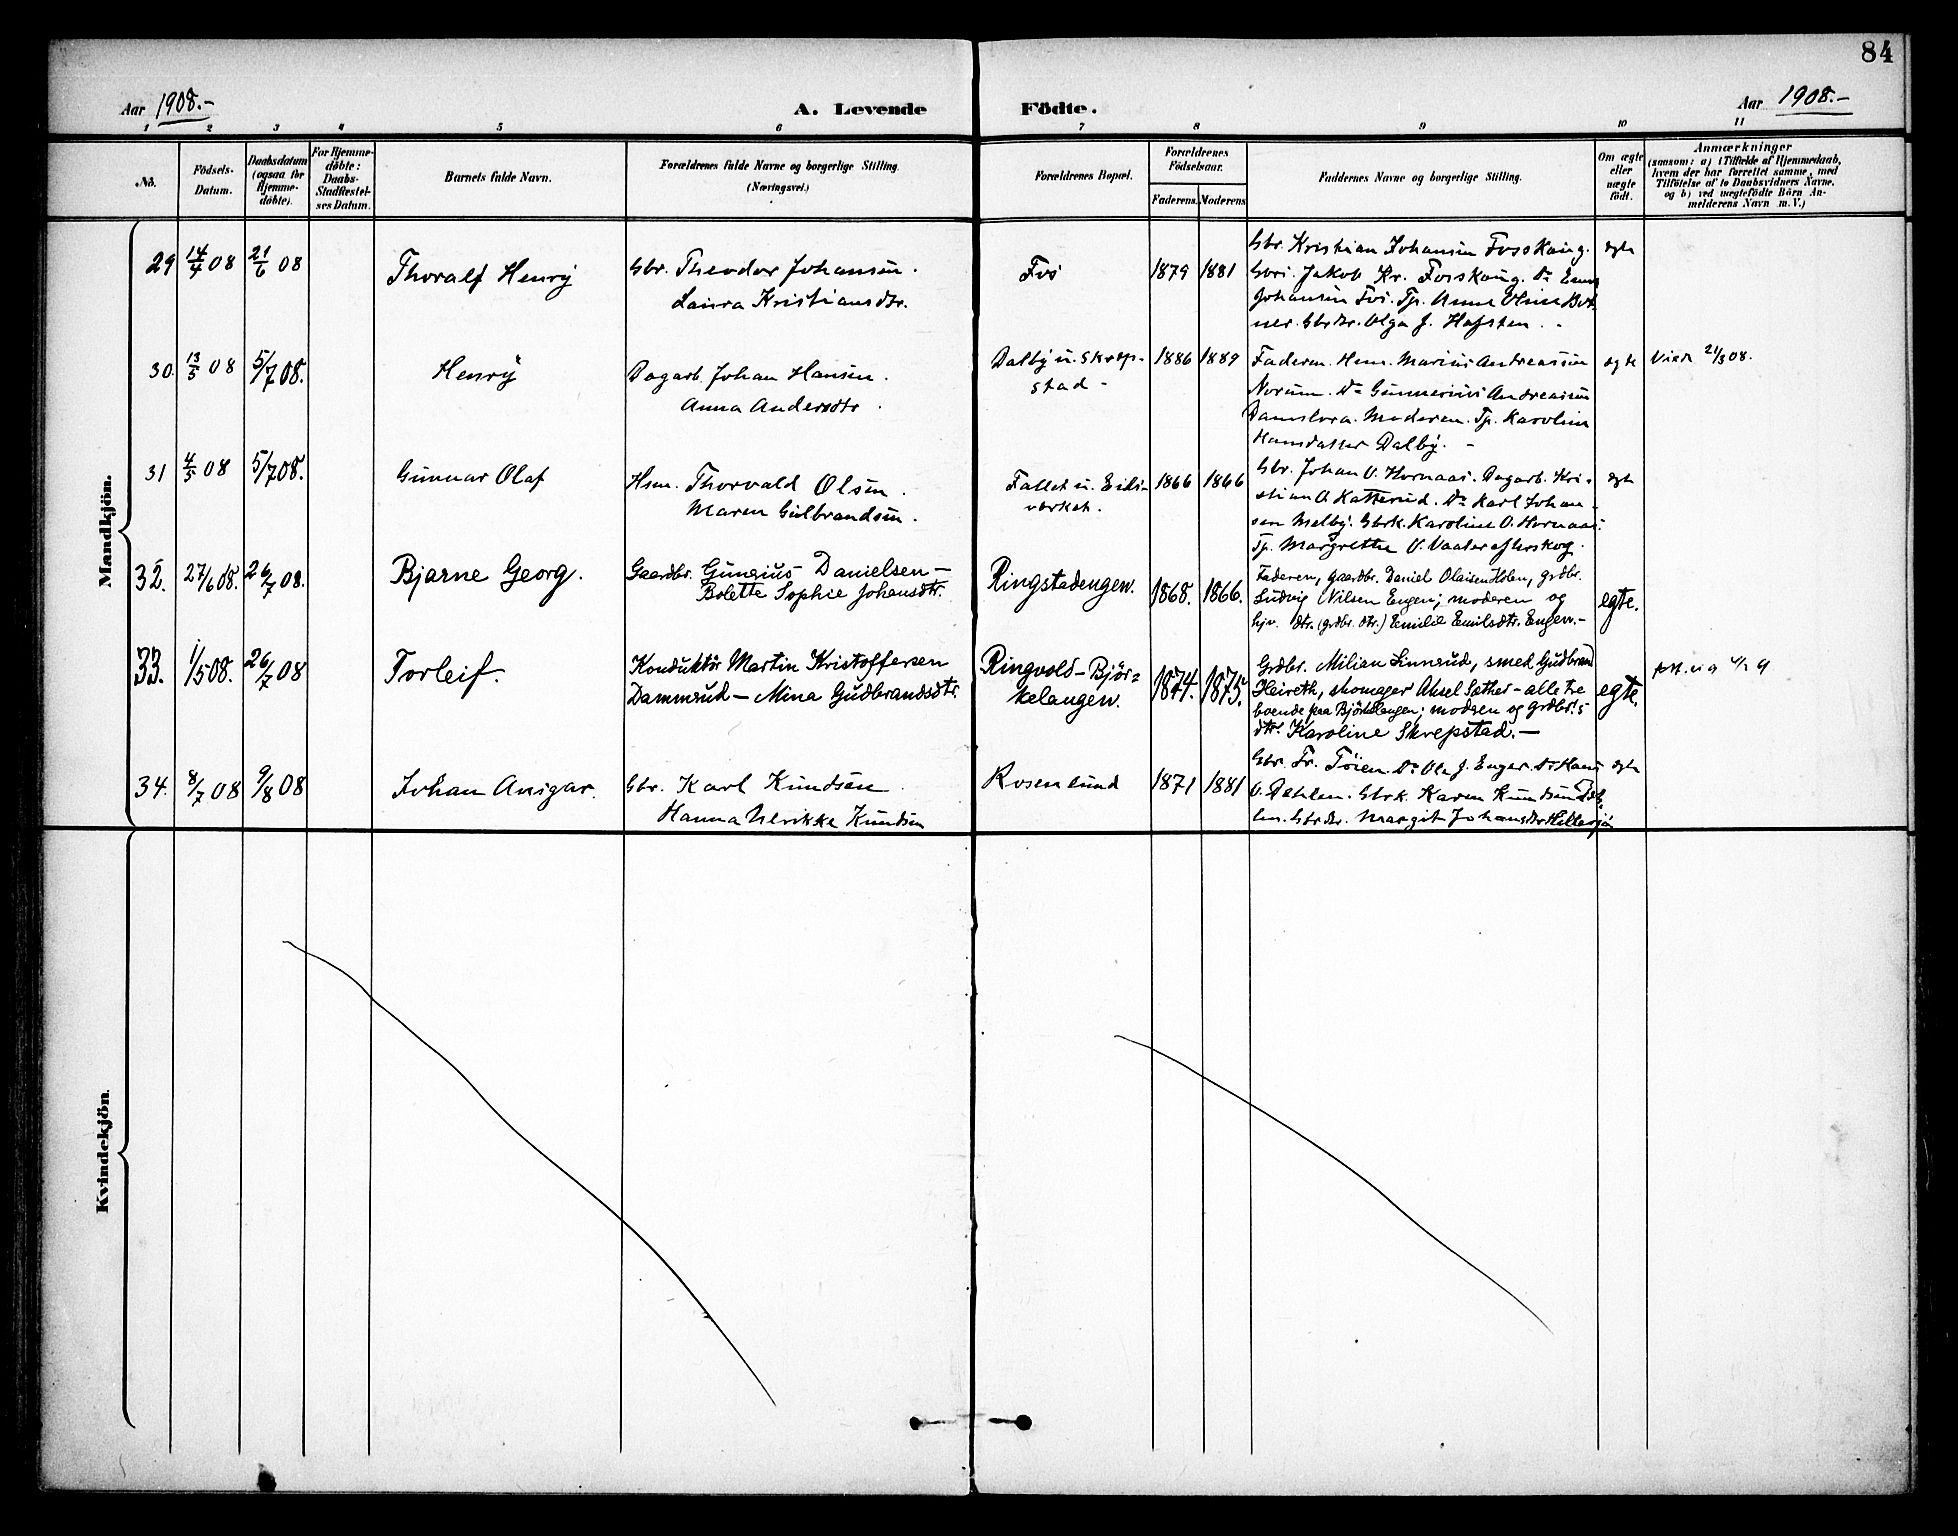 84
Aar 1908.-
A. Levende Födte.
Aar 1908.-
1 2 3 4 5 6 7 8 9 10 11
No.
Födsels-
Datum.
Daabsdatum
(ogsaa for
Hjemme-
döbte).
For Hjemme-
döbte:
Daabs-
Stadfæstel-
ses Datum.
Barnets fulde Navn.
Forældrenes fulde Navne og borgerlige Stilling.
(Næringsvei.)
Forældrenes Bopæl.
Forældrenes
Födselsaar.
Faderens. Moderens
Faddernes Navne og borgerlige Stilling.
Om ægte
eller
uægte
födt.
Anmærkninger
(saasom: a) i Tilfælde af Hjemmedaab,
hvem der har forrettet samme, med
Tilföielse af to Daabsvidners Navne,
og b) ved uægtefödte Börn An-
melderens Navn m. V.)
Mandkjön.
29 14/4 08 21/6 08 Thoralf Henry
Gbr. Theodor Johansen.
Laura Kristiansdtr.
Fos
1879 1881
Gbr. Kristian Johansen Fosskaug.
Jakob Kr. Fosskaug. Do
Johansen Fos. Tp. Anna
Olga J. Hafsten.
egte
30. 13/5 08 5/7 08. Henry
Dagarb. Johan Hansen.
Anna Andersdtr.
Dalby u. Skrep-
stad -
1886 1889
Faderen. Hsm. Marius Andreassen
Norum. Do Gunnerius Andreassen
Damslora. Moderen. Tp. Karoline
Hansdatter Dalby. -
egte
Viede 21/3 08.
31 4/5 08 5/7 08. Gunnar Olaf
Hsm. Thorvald Olsen.
Maren Gulbrandsen.
Fallet u. Eids-
verket.
1866 1866
Gbr. Johan O. Hornaas. Dagarb. Kri-
stian O. Katterud. Do Karl Johan-
sen Melby. Gbrk. Karoline O. Hornaas.
Tp. Margrethe O.
egte
32. 27/6 08. 26/7 08. Bjarne Georg.
Gaardbr. Gunerius Danielsen -
Bolette Sophie Johansdtr.
Ringstadengen.
1868. 1866.
Faderen, gaardbr. Daniel Olaisen Holen, grdbr.
Ludvig Nilsen Engen; moderen og
hjv. dtr. (grdbr. dtr.) Emilie Emilsdtr. Engen.-
egte.
33. 1/5 08. 26/7 08 Torleif.
Konduktör Martin Kristoffersen
Dammerud - Mina Gudbrandsdtr.
Ringvold - Björ-
kelangen.
1874. 1875.
Grdbr. Milian Linnerud, smed Gudbrand
Heireth, skomager Aksel Sæther - alle tre
boende paa Björkelangen; modren og grdbr.s
dtr. Karoline Skrepstad. -
egte.
34. 8/7 08 9/8 08 Johan Ansgar.
Gbr. Karl Knudsen.
Hanna Ulrikke Knudsen
Rosenlund
1871 1881
Gbr. Fr. Töien. Do Ole J. Enger. Do Hans
O. Dehlen. Gbrk. Karen Knudsen Deh-
len. Gbrdtr. Margit Johansdtr
egte
Kvindekjön.